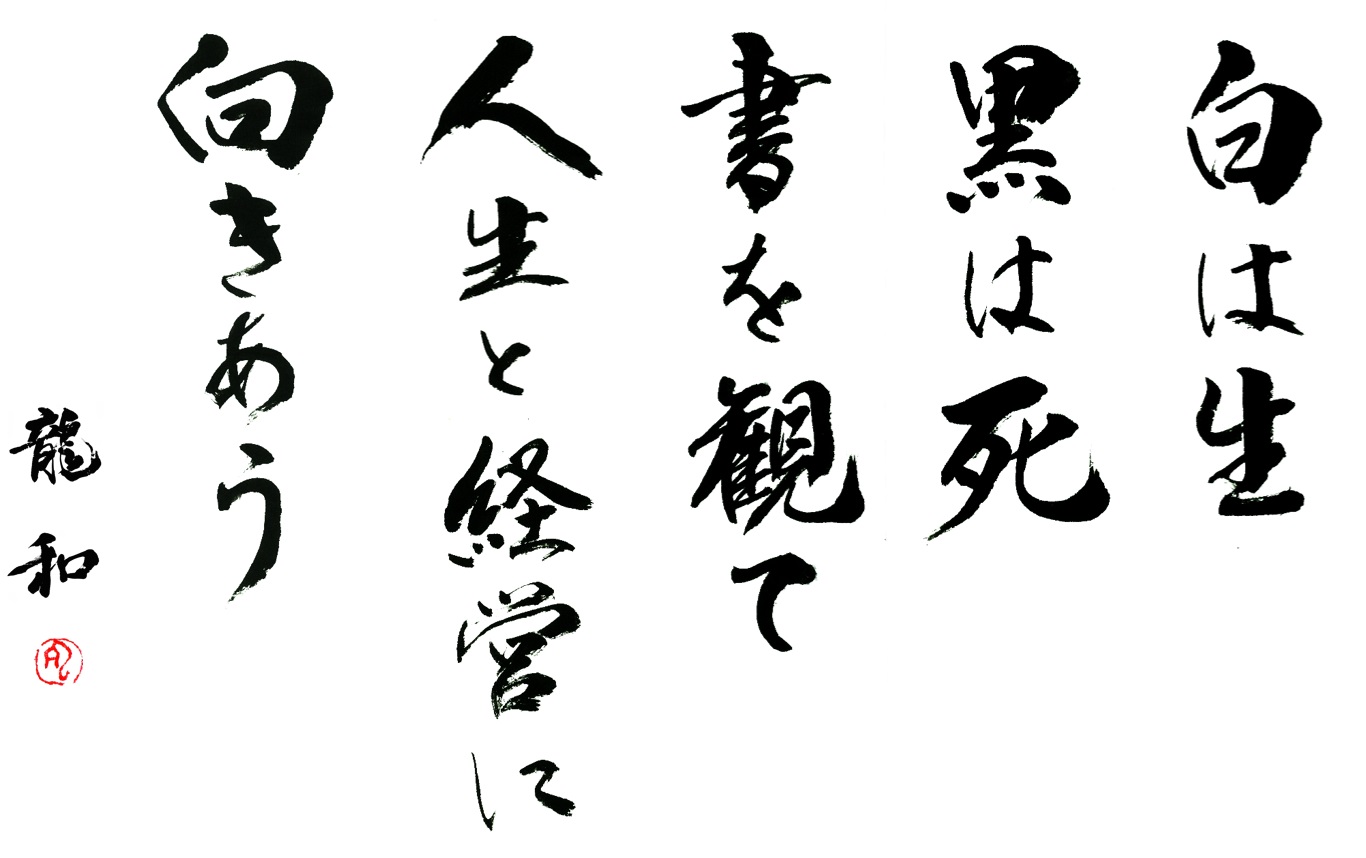 白は生
黒は死
書を観て
人生と経営に
向きあう
龍和